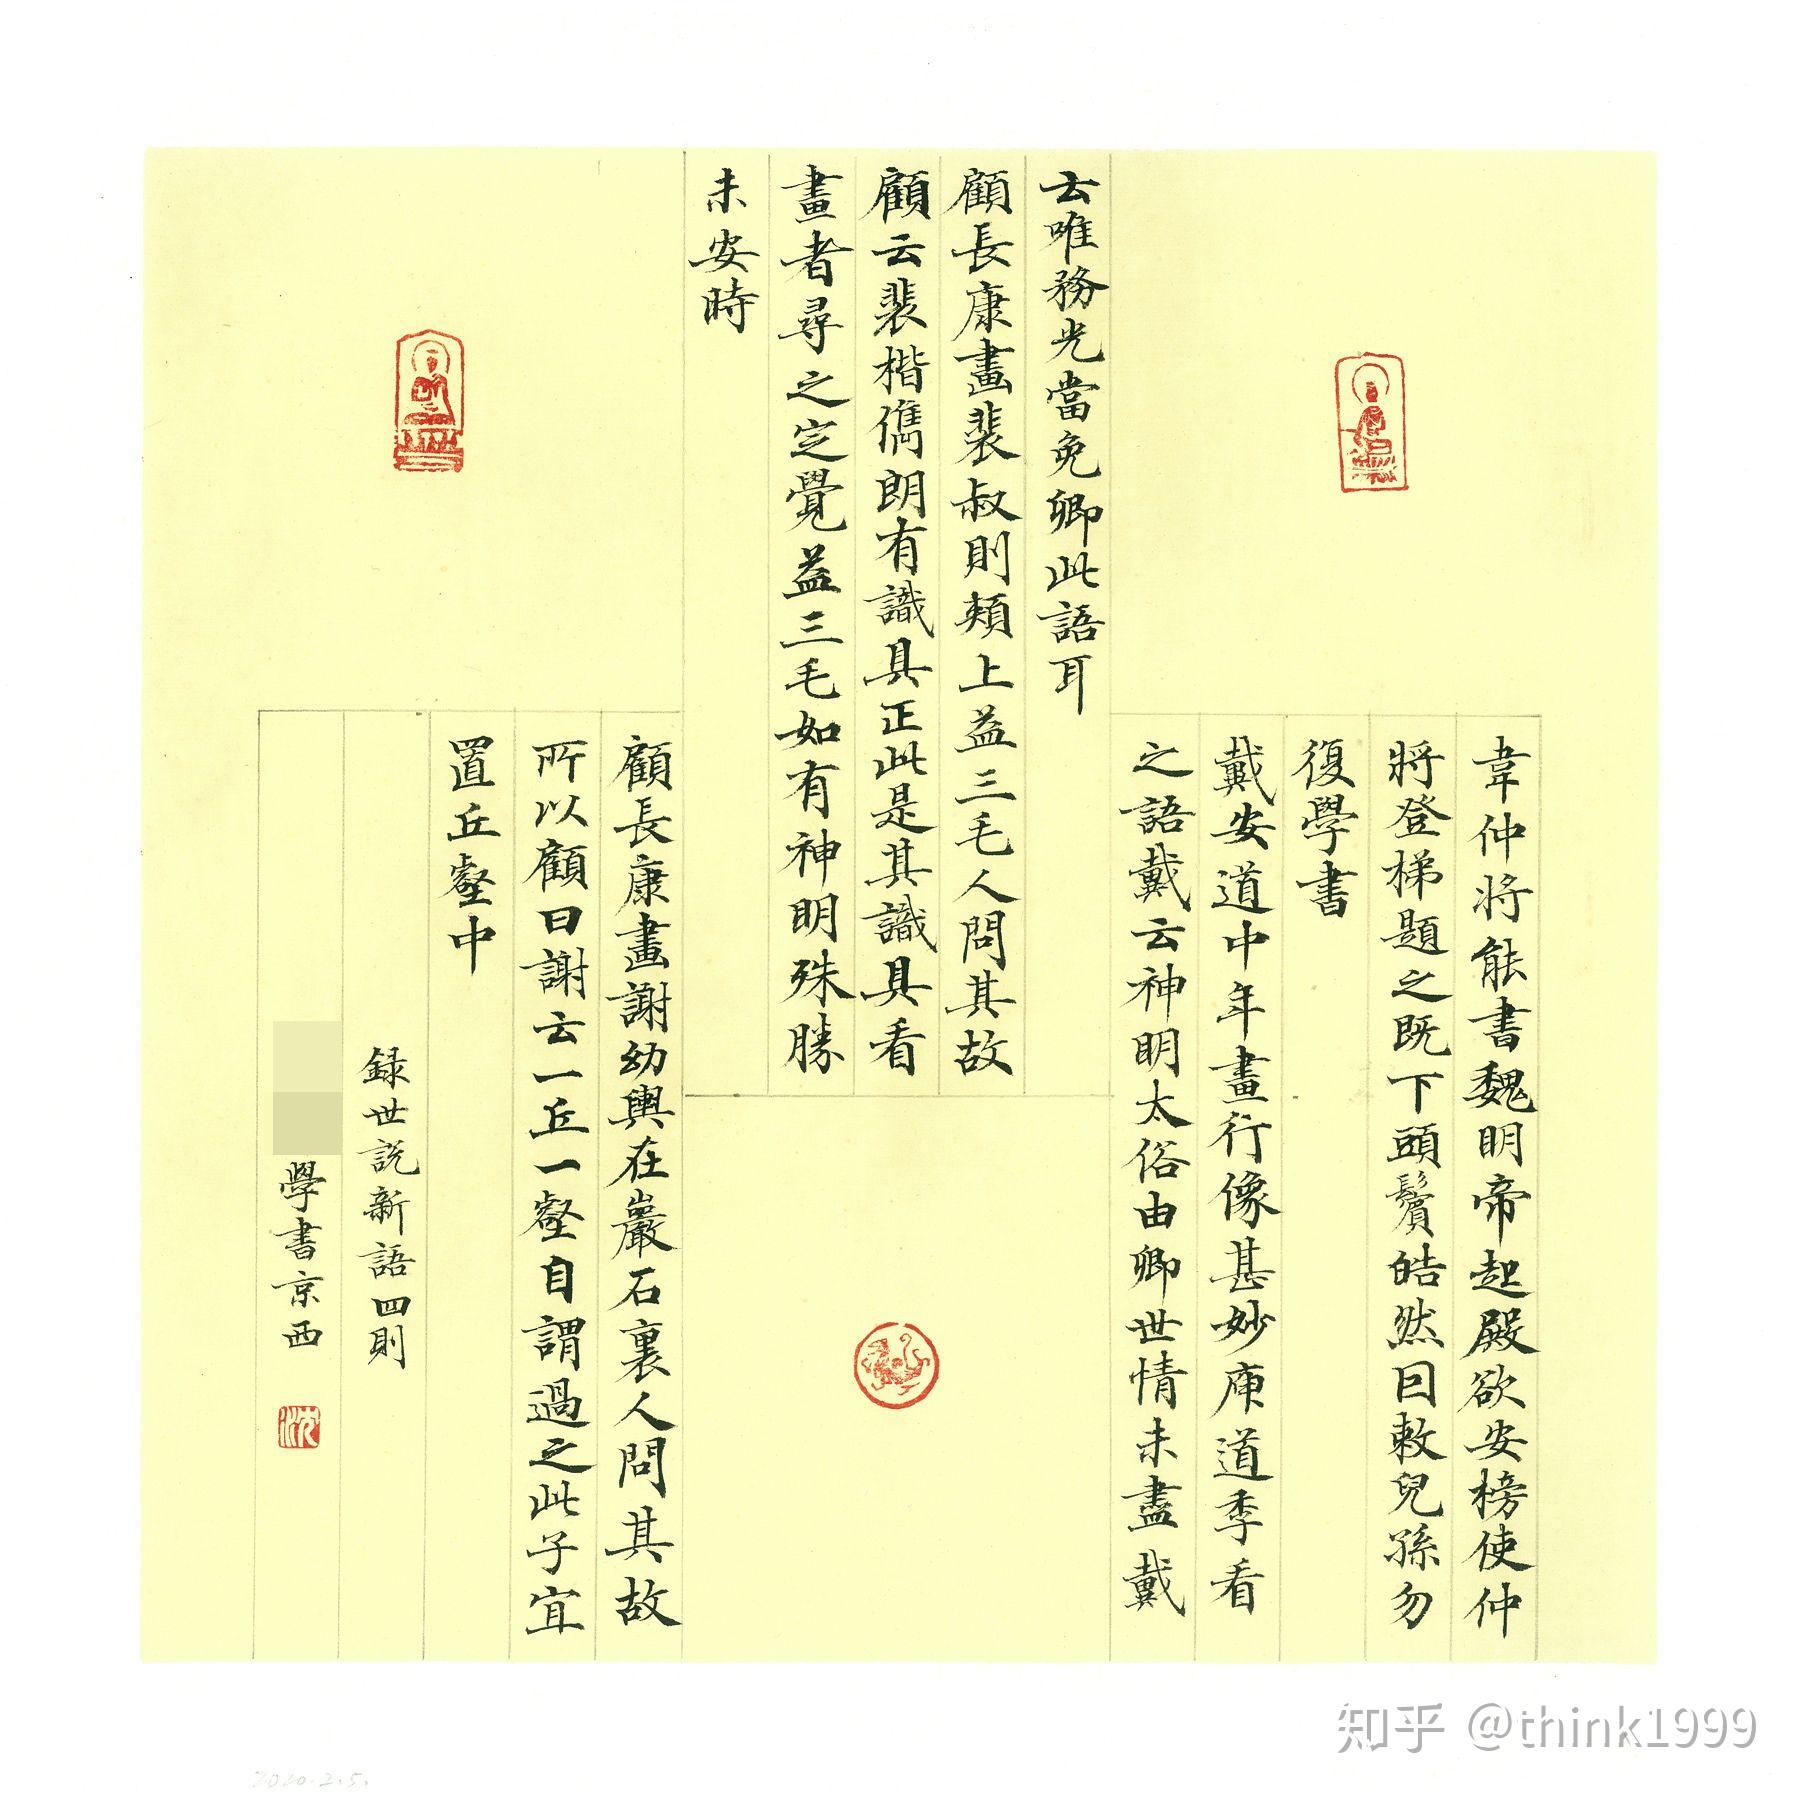 韋仲将能書魏明帝起殿欲安榜使仲
将登梯題之既下頭鬢皓然曰敕兒孫勿
復學書
戴安道中年畫行像甚妙庾道季看
之語戴云神明太俗由卿世情未盡戴
云唯務光當免卿此語耳
顧長康畫裴叔則頰上益三毛人問其故
顧云裴楷儁朗有識具正此是其識具看
畫者尋之定覺益三毛如有神明殊勝
未安時
顧長康畫謝幼輿在巖石裏人問其故
所以顧曰謝云一丘一壑自謂過之此子宜
置丘壑中
録世説新語四則
學書京西
沈
知乎 @think1999
2020.2.5.